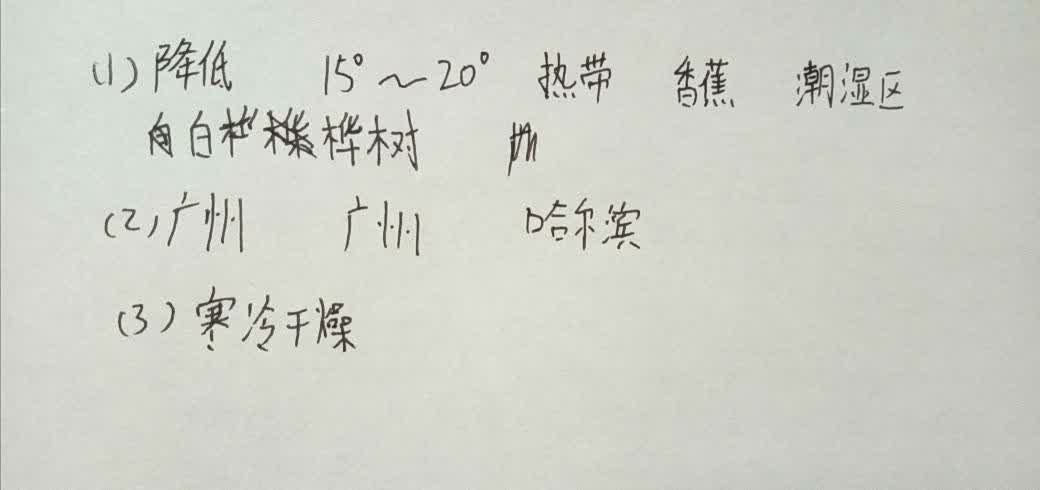 (1) 降低 15°～20° 热带 香蕉 潮湿区
白桦树
(2) 广州 广州 哈尔滨
(3) 寒冷干燥